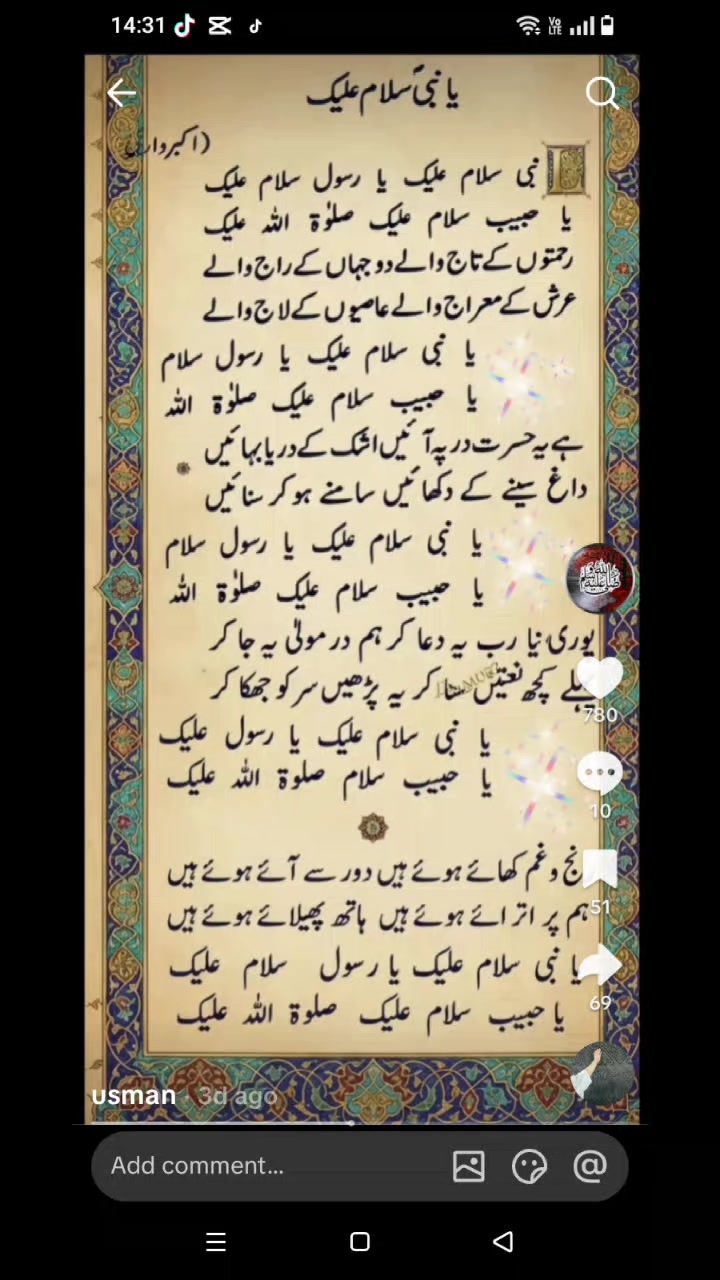 14:31
یا نبیؐ سلام علیک
نبی سلام علیک یا رسول سلام علیک
یا حبیب سلام علیک صلوٰۃ اللہ علیک
رحمتوں کے تاج والے دو جہاں کے راج والے
عرش کے معراج والے عاصیوں کے لاج والے
یا نبی سلام علیک یا رسول سلام
یا حبیب سلام علیک صلوٰۃ اللہ
ہے یہ حسرت در پہ آئیں اشک کے دریا بہائیں
داغ سینے کے دکھائیں سامنے ہو کر سنائیں
یا نبی سلام علیک یا رسول سلام
یا حبیب سلام علیک صلوٰۃ اللہ
رب یہ دعا کر ہم در مولیٰ پہ جا کر
پہلے کچھ نعتیں سنا کر یہ پڑھیں سر کو جھکا کر
یا نبی سلام علیک یا رسول علیک
یا حبیب سلام صلوۃ اللہ علیک
780
10
و غم کھائے ہوئے ہیں دور سے آئے ہوئے ہیں
51
ہم پر اترائے ہوئے ہیں ہاتھ پھیلائے ہوئے ہیں
یا نبی سلام علیک یا رسول سلام علیک
69
یا حبیب سلام علیک صلوۃ اللہ علیک
usman · 3d ago
Add comment...